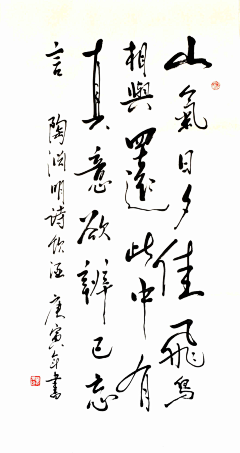 山氣日夕佳飛鳥
相與還此中有
真意欲辨已忘
言 陶渊明詩飲酒 庚寅年書